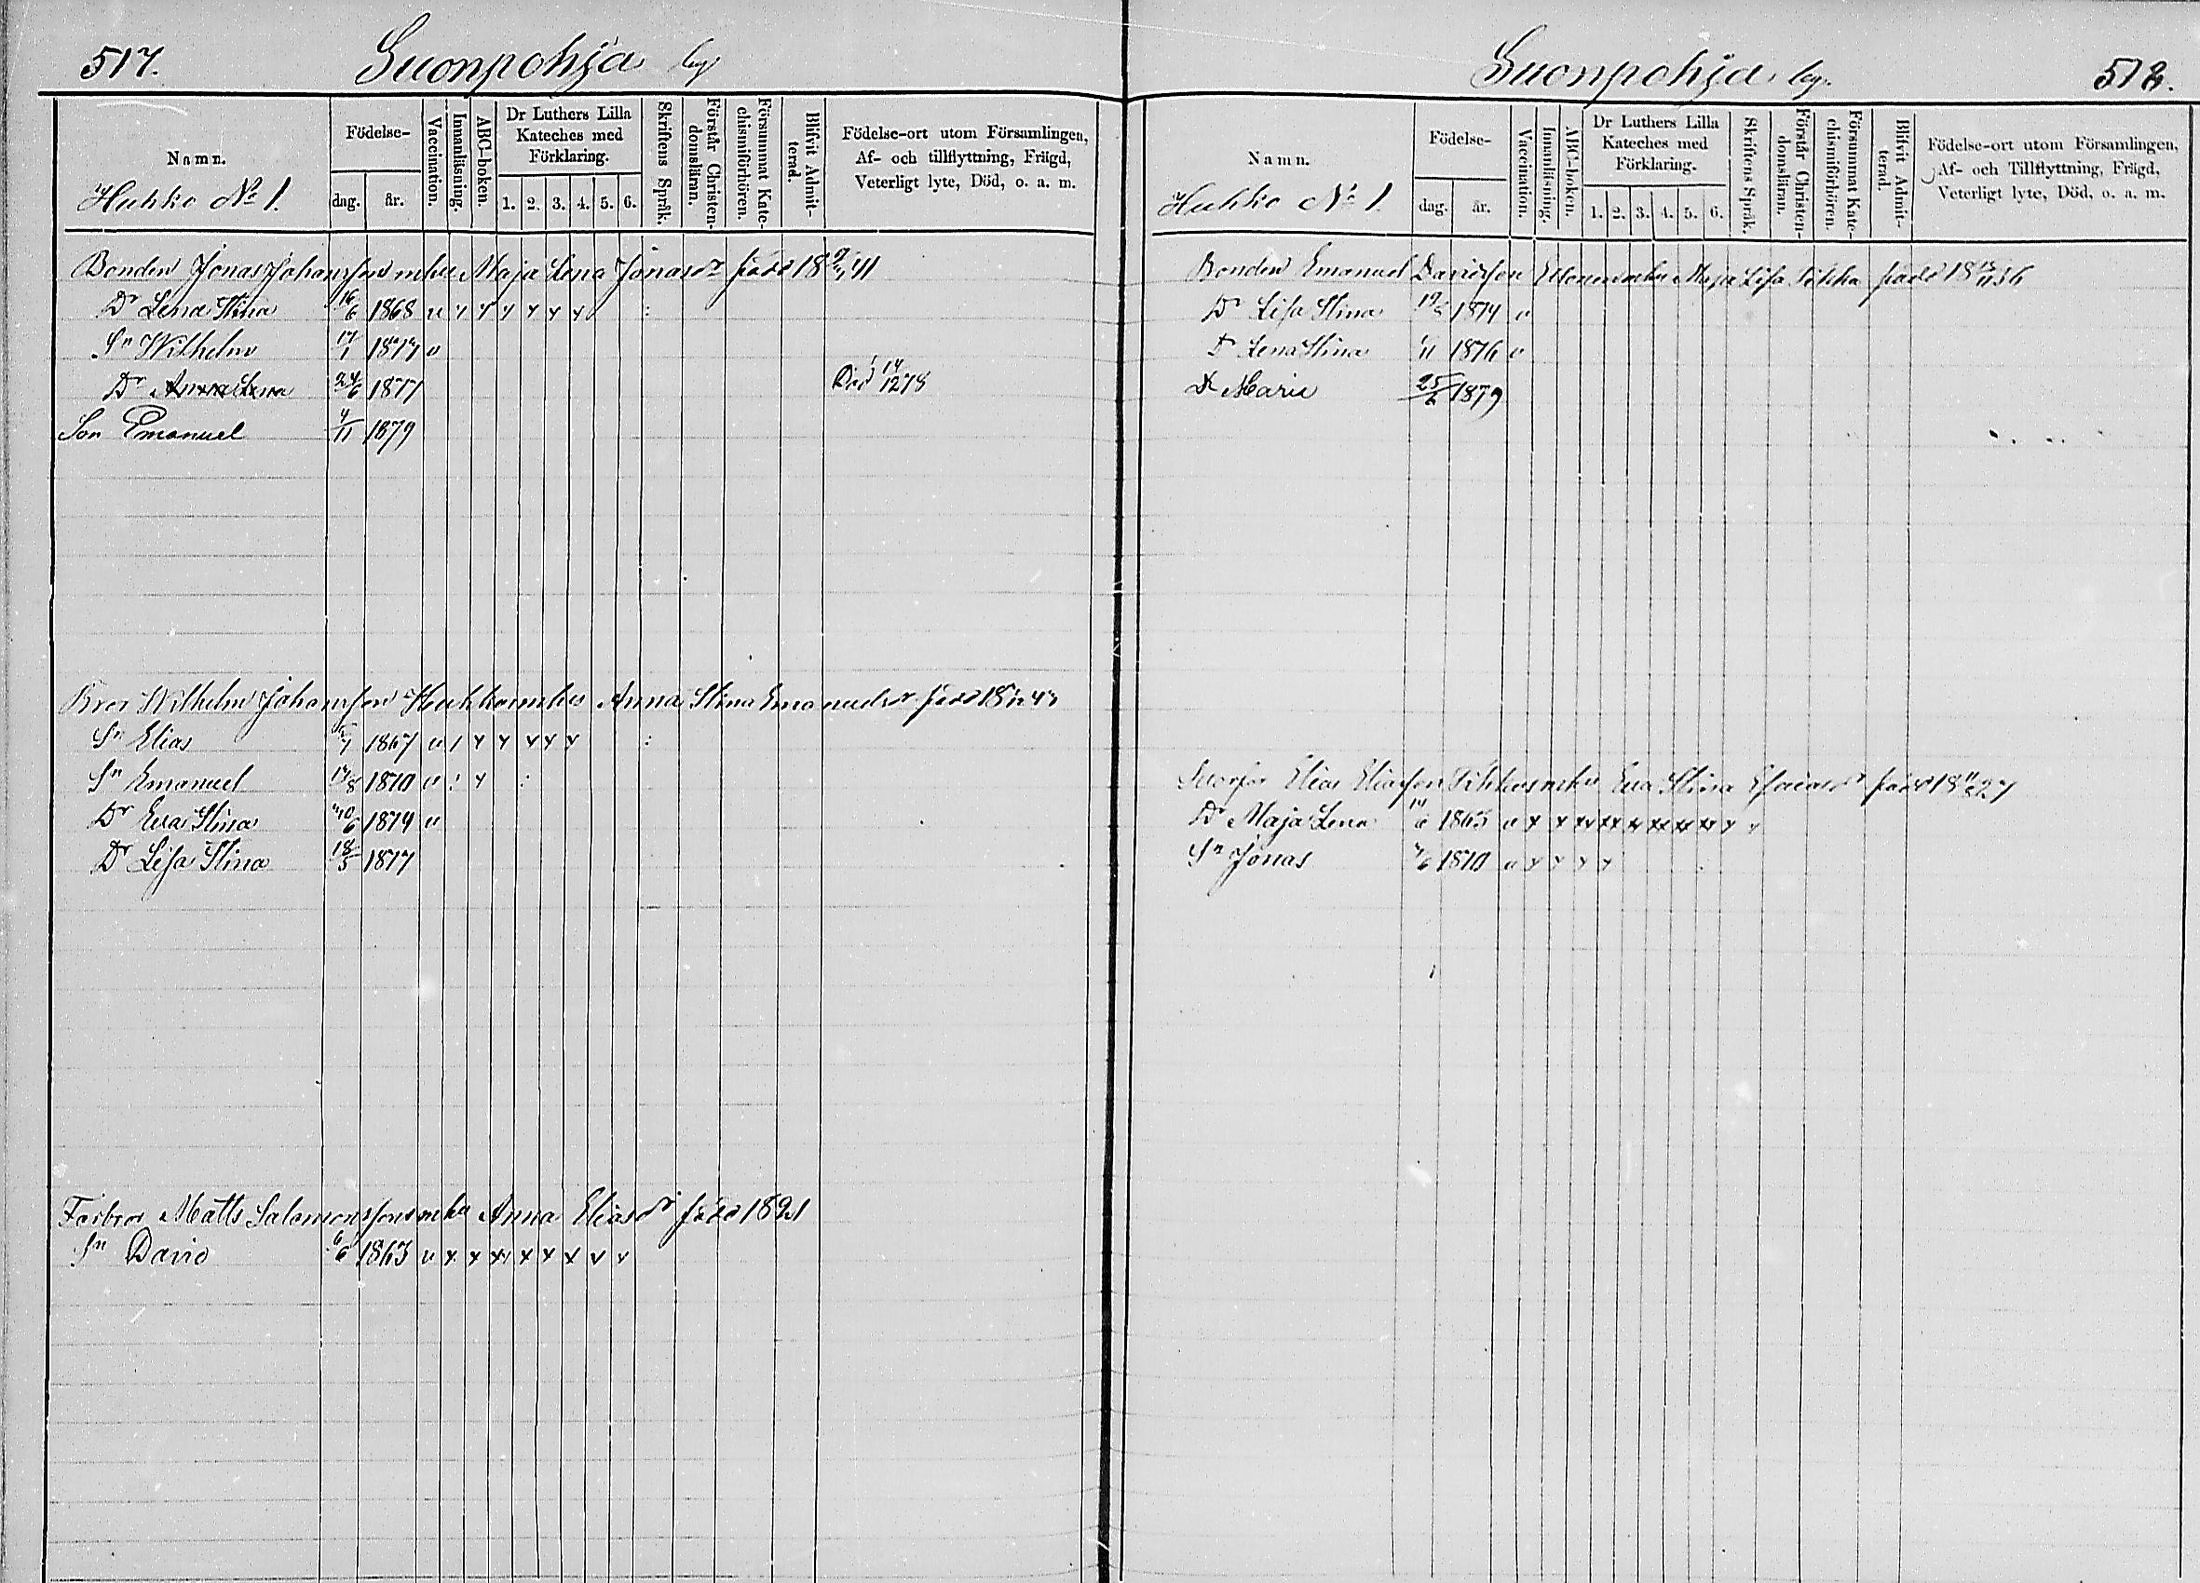 517. Suonpohja by
Namn.
Huhko No 1.
Födelse-
dag. år.
Vaccination.
Innanläsning.
ABC-boken.
Dr Luthers Lilla Kateches med Förklaring.
1. 2. 3. 4. 5. 6.
Skriftens Språk.
Förstår Christen-domsläran.
Försummat Kate-chismiförhören.
Blifvit Admit-terad.
Födelse-ort utom Församlingen,
Af- och tillflyttning, Frägd,
Veterligt lyte, Död, o. a. m.
Bonden Jonas Johansson mhu Maja Lena Jonasdr född 18
Dr Lena Stina 16/6 1868 v
Sn Wilhelm 1877 v
Dr Anna Lena 24/6 1877 Död
Son Emanuel 4/11 1879
Bror Wilhelm Johansson Huhko mhu Anna Stina Emanuelsdr född 18
Sn Elias 1867 v
Sn Emanuel 1870 v
Dr Eva Stina 1874 v
Dr Lisa Stina 18/5 1877
Farbror Matts Salomonsson mhu Anna Eliasdr född 1821
Sn David 6/6 1863 v x x x x x x v v
Suonpohja by. 518.
Namn.
Huhko No 1.
Födelse-
dag. år.
Vaccination.
Innanläsning.
ABC-boken.
Dr Luthers Lilla Kateches med Förklaring.
1. 2. 3. 4. 5. 6.
Skriftens Språk.
Förstår Christen-domsläran.
Försummat Kate-chismiförhören.
Blifvit Admit-terad.
Födelse-ort utom Församlingen,
Af- och Tillflyttning, Frägd,
Veterligt lyte, Död, o. a. m.
Bonden Emanuel Davidsson Maja Lisa född 18
Dr Lisa Stina 1874 v
Dr Lena Stina 1876 v
Dr Maria 25/6 1879
Elias Eliasson mhu Eva Stina född 18
Dr Maja Lena 1865 v
Sn Jonas 1870 v